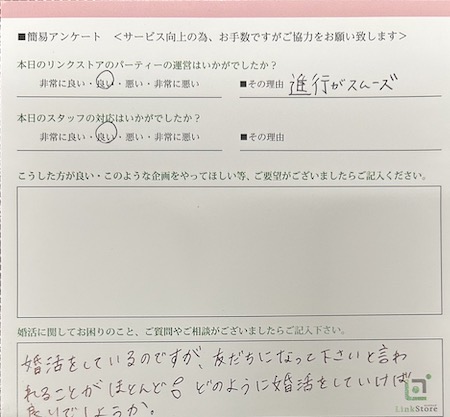 ■簡易アンケート ＜サービス向上の為、お手数ですがご協力をお願い致します＞
本日のリンクストアのパーティーの運営はいかがでしたか？
非常に良い・良い・悪い・非常に悪い ■その理由 進行がスムーズ
本日のスタッフの対応はいかがでしたか？
非常に良い・良い・悪い・非常に悪い ■その理由
こうした方が良い・このような企画をやってほしい等、ご要望がございましたらご記入ください。
婚活に関してお困りのこと、ご質問やご相談がございましたらご記入下さい。
婚活をしているのですが、友だちになって下さいと言わ
れることがほとんど。どのように婚活をしていけば
良いでしょうか。
LinkStore